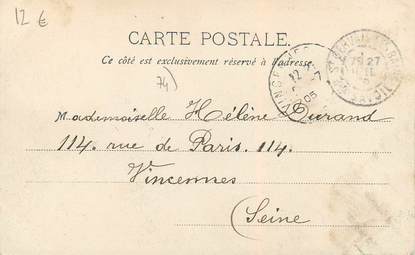 12 €
CARTE POSTALE.
Ce côté est exclusivement réservé à l'adresse.
74
VINCENNES
Mademoiselle Hélène Durand
114. rue de Paris. 114.
Vincennes
(Seine)